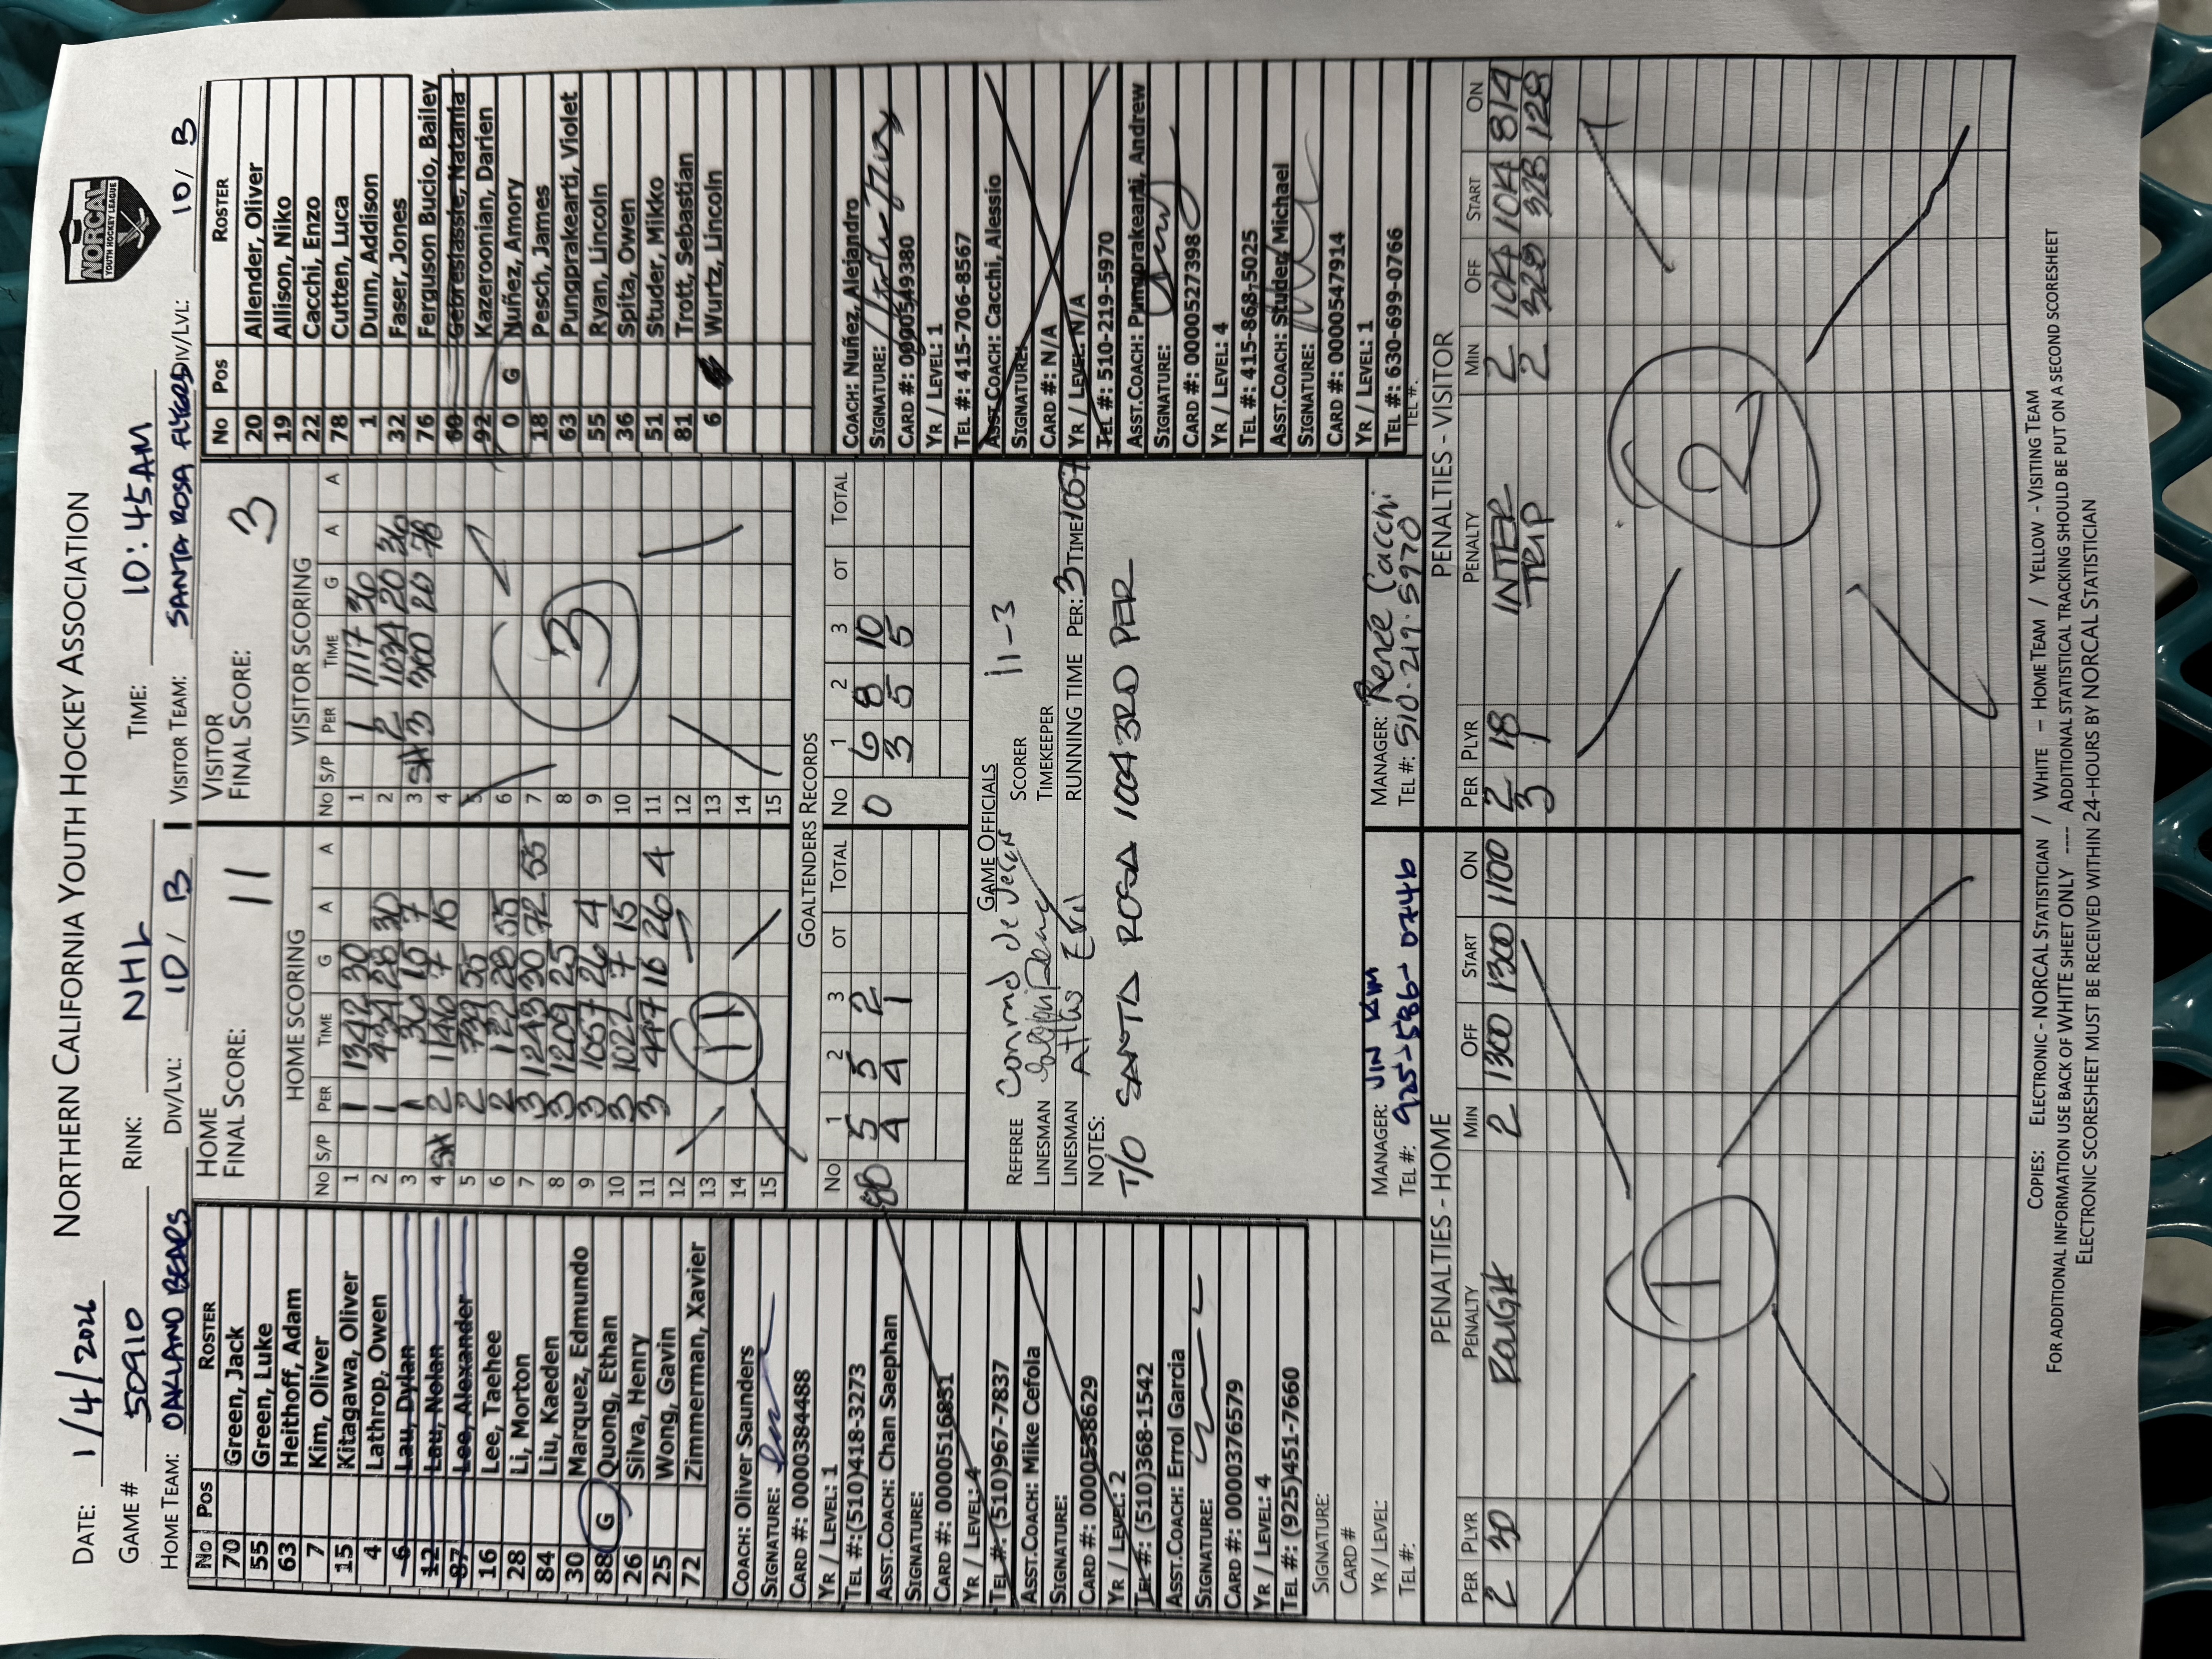 NORTHERN CALIFORNIA YOUTH HOCKEY ASSOCIATION
NORCAL
YOUTH HOCKEY LEAGUE
DATE: 1/4/2026
GAME # 50910 RINK: NHL TIME: 10:45AM
HOME TEAM: OAKLAND BEARS DIV/LVL: 10 / B VISITOR TEAM: SANTA ROSA FLYERS DIV/LVL: 10/ B
No Pos ROSTER
70 Green, Jack
55 Green, Luke
63 Heithoff, Adam
7 Kim, Oliver
15 Kitagawa, Oliver
4 Lathrop, Owen
6 Lau, Dylan
12 Lau, Nolan
87 Lee, Alexander
16 Lee, Taehee
28 Li, Morton
84 Liu, Kaeden
30 Marquez, Edmundo
88 G Quong, Ethan
26 Silva, Henry
25 Wong, Gavin
72 Zimmerman, Xavier
COACH: Oliver Saunders
SIGNATURE:
CARD #: 0000384488
YR / LEVEL: 1
TEL #:(510)418-3273
ASST.COACH: Chan Saephan
SIGNATURE:
CARD #: 0000516831
YR / LEVEL: 4
TEL #: (510)967-7837
ASST.COACH: Mike Cefola
SIGNATURE:
CARD #: 0000538629
YR / LEVEL: 2
TEL #: (510)368-1542
ASST.COACH: Errol Garcia
SIGNATURE:
CARD #: 0000376579
YR / LEVEL: 4
TEL #: (925)451-7660
SIGNATURE:
CARD #
YR / LEVEL:
TEL #:
HOME
FINAL SCORE: 11
HOME SCORING
No S/P PER TIME G A A
1 1 1342 30
2 1 431 28 30
3 1 30 15 7
4 SH 2 1140 7 15
5 2 739 55
6 2 122 28 55
7 3 1243 30 72 55
8 3 1209 25
9 3 1057 26 4
10 3 1022 7 15
11 3 447 16 26 4
12
13
14
15
11
VISITOR
FINAL SCORE: 3
VISITOR SCORING
No S/P PER TIME G A A
1 1 1117 36
2 2 1034 20 36
3 SH 3 300 20 78
4
5
6
7
8
9
10
11
12
13
14
15
3
GOALTENDERS RECORDS
No 1 2 3 OT TOTAL No 1 2 3 OT TOTAL
88 5 5 2 0 6 8 10
4 4 1 3 5 5
GAME OFFICIALS
REFEREE Conrad de Jesus SCORER 11-3
LINESMAN TIMEKEEPER
LINESMAN RUNNING TIME PER: 3 TIME: 1057
NOTES:
T/O SANTA ROSA 1004 3RD PER
MANAGER: JIN KIM
TEL #: 925-586-0746
MANAGER: Renee Cacchi
TEL #: 510.219.5970
No Pos ROSTER
20 Allender, Oliver
19 Allison, Niko
22 Cacchi, Enzo
78 Cutten, Luca
1 Dunn, Addison
32 Faser, Jones
76 Ferguson Bucio, Bailey
60 Gebreslassie, Natania
92 Kazeroonian, Darien
0 G Nuñez, Amory
18 Pesch, James
63 Pungprakearti, Violet
55 Ryan, Lincoln
36 Spita, Owen
51 Studer, Mikko
81 Trott, Sebastian
6 Wurtz, Lincoln
COACH: Nuñez, Alejandro
SIGNATURE:
CARD #: 0000549380
YR / LEVEL: 1
TEL #: 415-706-8567
ASST.COACH: Cacchi, Alessio
SIGNATURE:
CARD #: N/A
YR / LEVEL: N/A
TEL #: 510-219-5970
ASST.COACH: Pungprakearti, Andrew
SIGNATURE:
CARD #: 0000527398
YR / LEVEL: 4
TEL #: 415-868-5025
ASST.COACH: Studer, Michael
SIGNATURE:
CARD #: 0000547914
YR / LEVEL: 1
TEL #: 630-699-0766
TEL #:
PENALTIES - HOME
PER PLYR PENALTY MIN OFF START ON
2 30 ROUGH 2 1300 1300 1100
1
PENALTIES - VISITOR
PER PLYR PENALTY MIN OFF START ON
2 18 INTER 2 1014 1014 814
3 1 TRIP 2 328 328 128
2
COPIES: ELECTRONIC - NORCAL STATISTICIAN / WHITE - HOME TEAM / YELLOW - VISITING TEAM
FOR ADDITIONAL INFORMATION USE BACK OF WHITE SHEET ONLY ---- ADDITIONAL STATISTICAL TRACKING SHOULD BE PUT ON A SECOND SCORESHEET
ELECTRONIC SCORESHEET MUST BE RECEIVED WITHIN 24-HOURS BY NORCAL STATISTICIAN